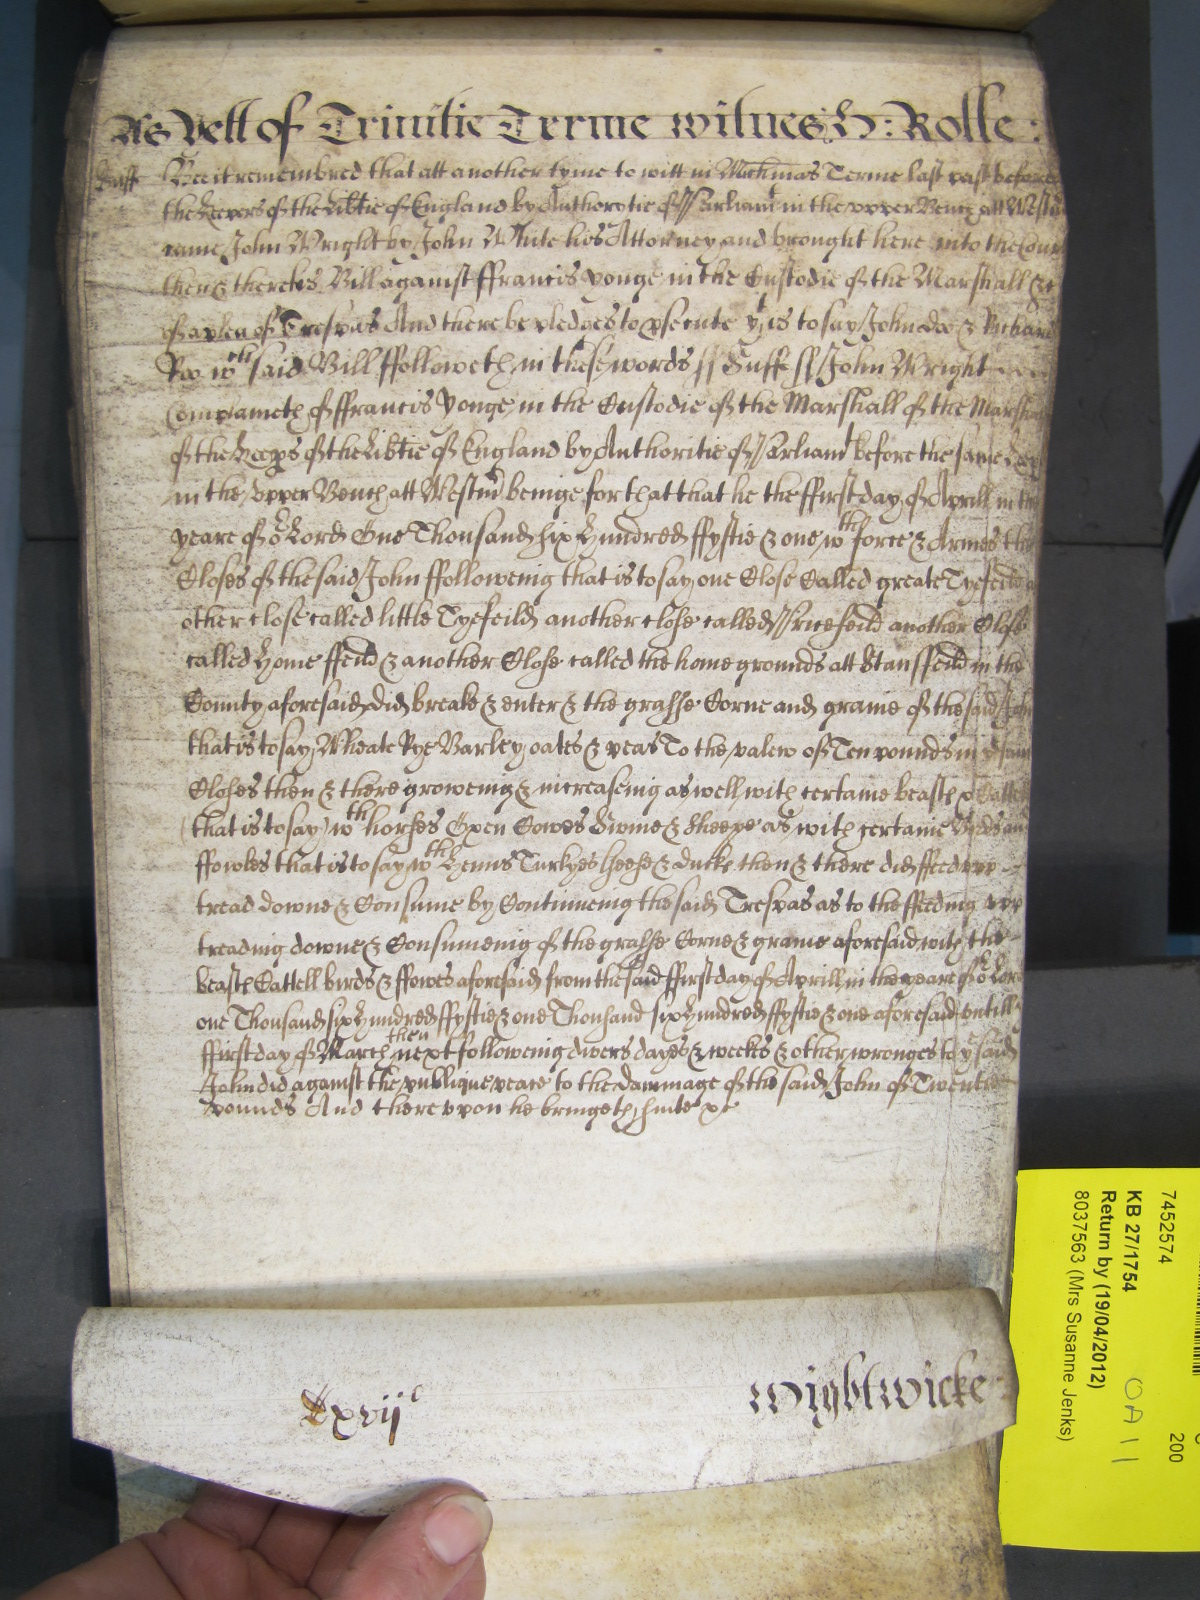 As yett of Trinitie Terme witnes H: Rolle:
Suff Bee it remembred that att another tyme to witt in Michmas Terme last past before
the Keepers of the Libtie of England by Authorytie of Parliamt in the vpper Bench att Westm
came John Wright by John White his Attorney and brought here into the Court
then & there his Bill against ffrancis yonge in the Custodie of the Marshall &c
of a plea of Trespas And there be pledges to psecute yt is to say John doe & Richard
Roo wch said Bill ffolloweth in these words ss Suff ss John Wright
Complaineth of ffrancis Yonge in the Custodie of the Marshall of the Marshal
of the Keeps of the Libtie of England by Authoritie of Parliamt before the same Keep
in the vpper Bench att Westm beinge for that that he the ffirst day of Aprill in the
yeare of or Lord One Thousand six Hundred ffyftie & one wth force & Armes the
Closes of the said John ffollowenig that is to say one Close Called greate Tyefeild a
other close called little Tyefeild another close called Pricefeild another Close
called Home ffeild & another Close called the home grounds att Stansfeild in the
County aforesaid did breake & enter & the grasse Corne and graine of the said John
that is to say Wheate Rye Barley oates & peas To the valew of Ten pounds in ye said
Closes then & there groweinig & increaseinig as well with certaine beasts & Cattell
(that is to say) wth horses Oxen Cowes Swine & sheepe as with certaine Byrds an
ffowles that is to say wth Henns Turkyes Geese & ducks then & there did ffeed vpp
tread downe & Consume by Continueinig the said Trespas as to the ffeeding vpp
treading downe & Consumeinig of the grasse Corne & graine aforesaid with the
beasts Cattell birds & ffowes aforesaid from the said ffirst day of Aprill in the yeare of or Lord
one Thousand six Hundred ffyftie & one Thousand six Hundred ffyftie & one aforesaid vntill
ffirst day of March then next followeinig divers dayes & weekes & other wronges to ye said
John did against the publique peace to the dammage of the said John of Twentie
pounds And there vpon he bringeth suite &c
Wightwicke
7452574
KB 27/1754
Return by (19/04/2012)
8037563 (Mrs Susanne Jenks)
200
OA11